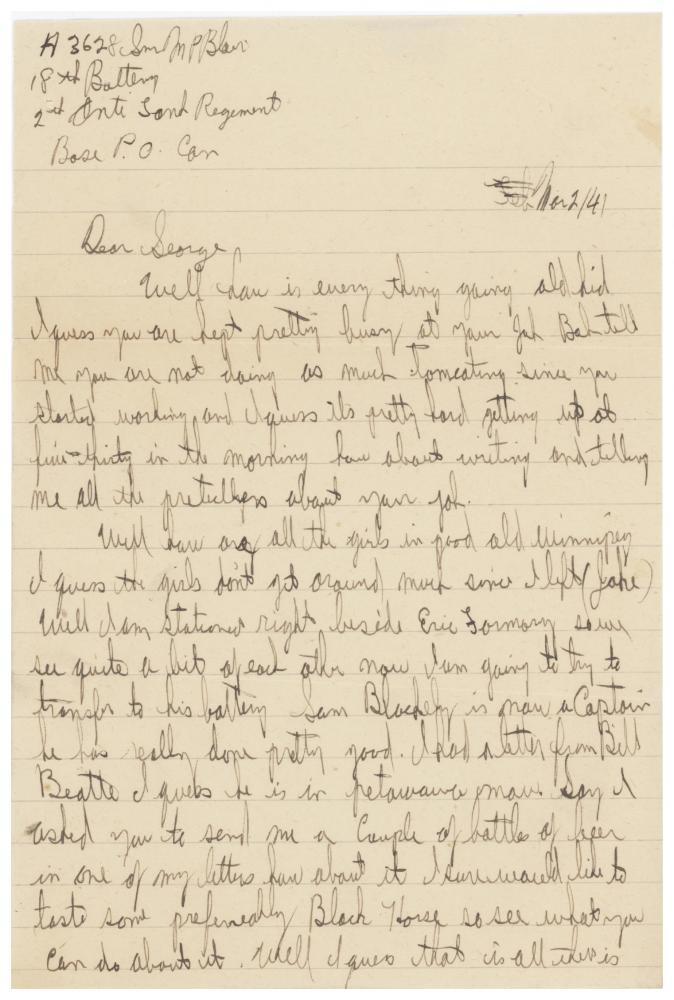 H 3628 Gnr M P Blair
18th Battery
2nd Anti Tank Regiment
Base P.O. Can
Feb Mar 2/41
Dear George
Well how is every thing going old kid
I guess you are kept pretty busy at your job Bab tell
me you are not doing as much tomcating since you
started working and I guess its pretty hard getting up at
five-thirty in the morning how about writing and telling
me all the about your job.
Well how are all the girls in good old Winnipeg
I guess the girls don't get around much since I left (Joke)
Well I am stationed right beside Eric so we
see quite a bit of each other now I am going to try to
transfer to his battery Sam is now a Captain
he has really done pretty good. I had a letter from Bill
Beatte I guess he is in petawawa now. Say I
asked you to send me a Couple of bottles of beer
in one of my letters how about it I sure would like to
taste some Black Horse so see what you
can do about it. Well I guess that is all there is